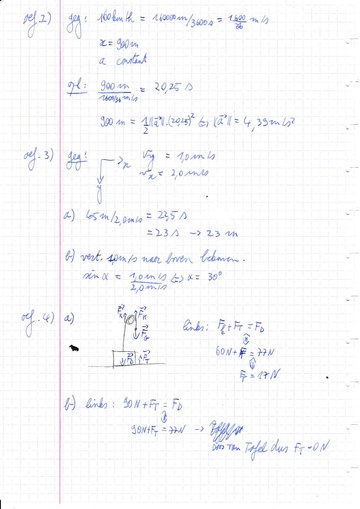 oef. 2) geg: 160 km/h = 160000m/3600s = 1600/36 m/s
x = 900m
a constant
opl: 900 m / 1600/36 m/s = 20,25 s
900 m = 1/2 ||a||.(20,25)² <=> ||a|| = 4,39 m/s²
oef. 3) geg: x vy = 1,0 m/s
y vx = 2,0 m/s
a) 45 m/2,0m/s = 22,5 s
= 23 s → 23 m
b) vert. 1,0m/s naar boven bekomen.
sin α = 1,0 m/s / 2,0 m/s <=> α = 30°
oef. 4) a) links: + FT = FD
60N + F = 77N
FT = 17 N
b) links: 90N + FT = FD
90N + FT = 77N →
van Tafel dus FT = 0N